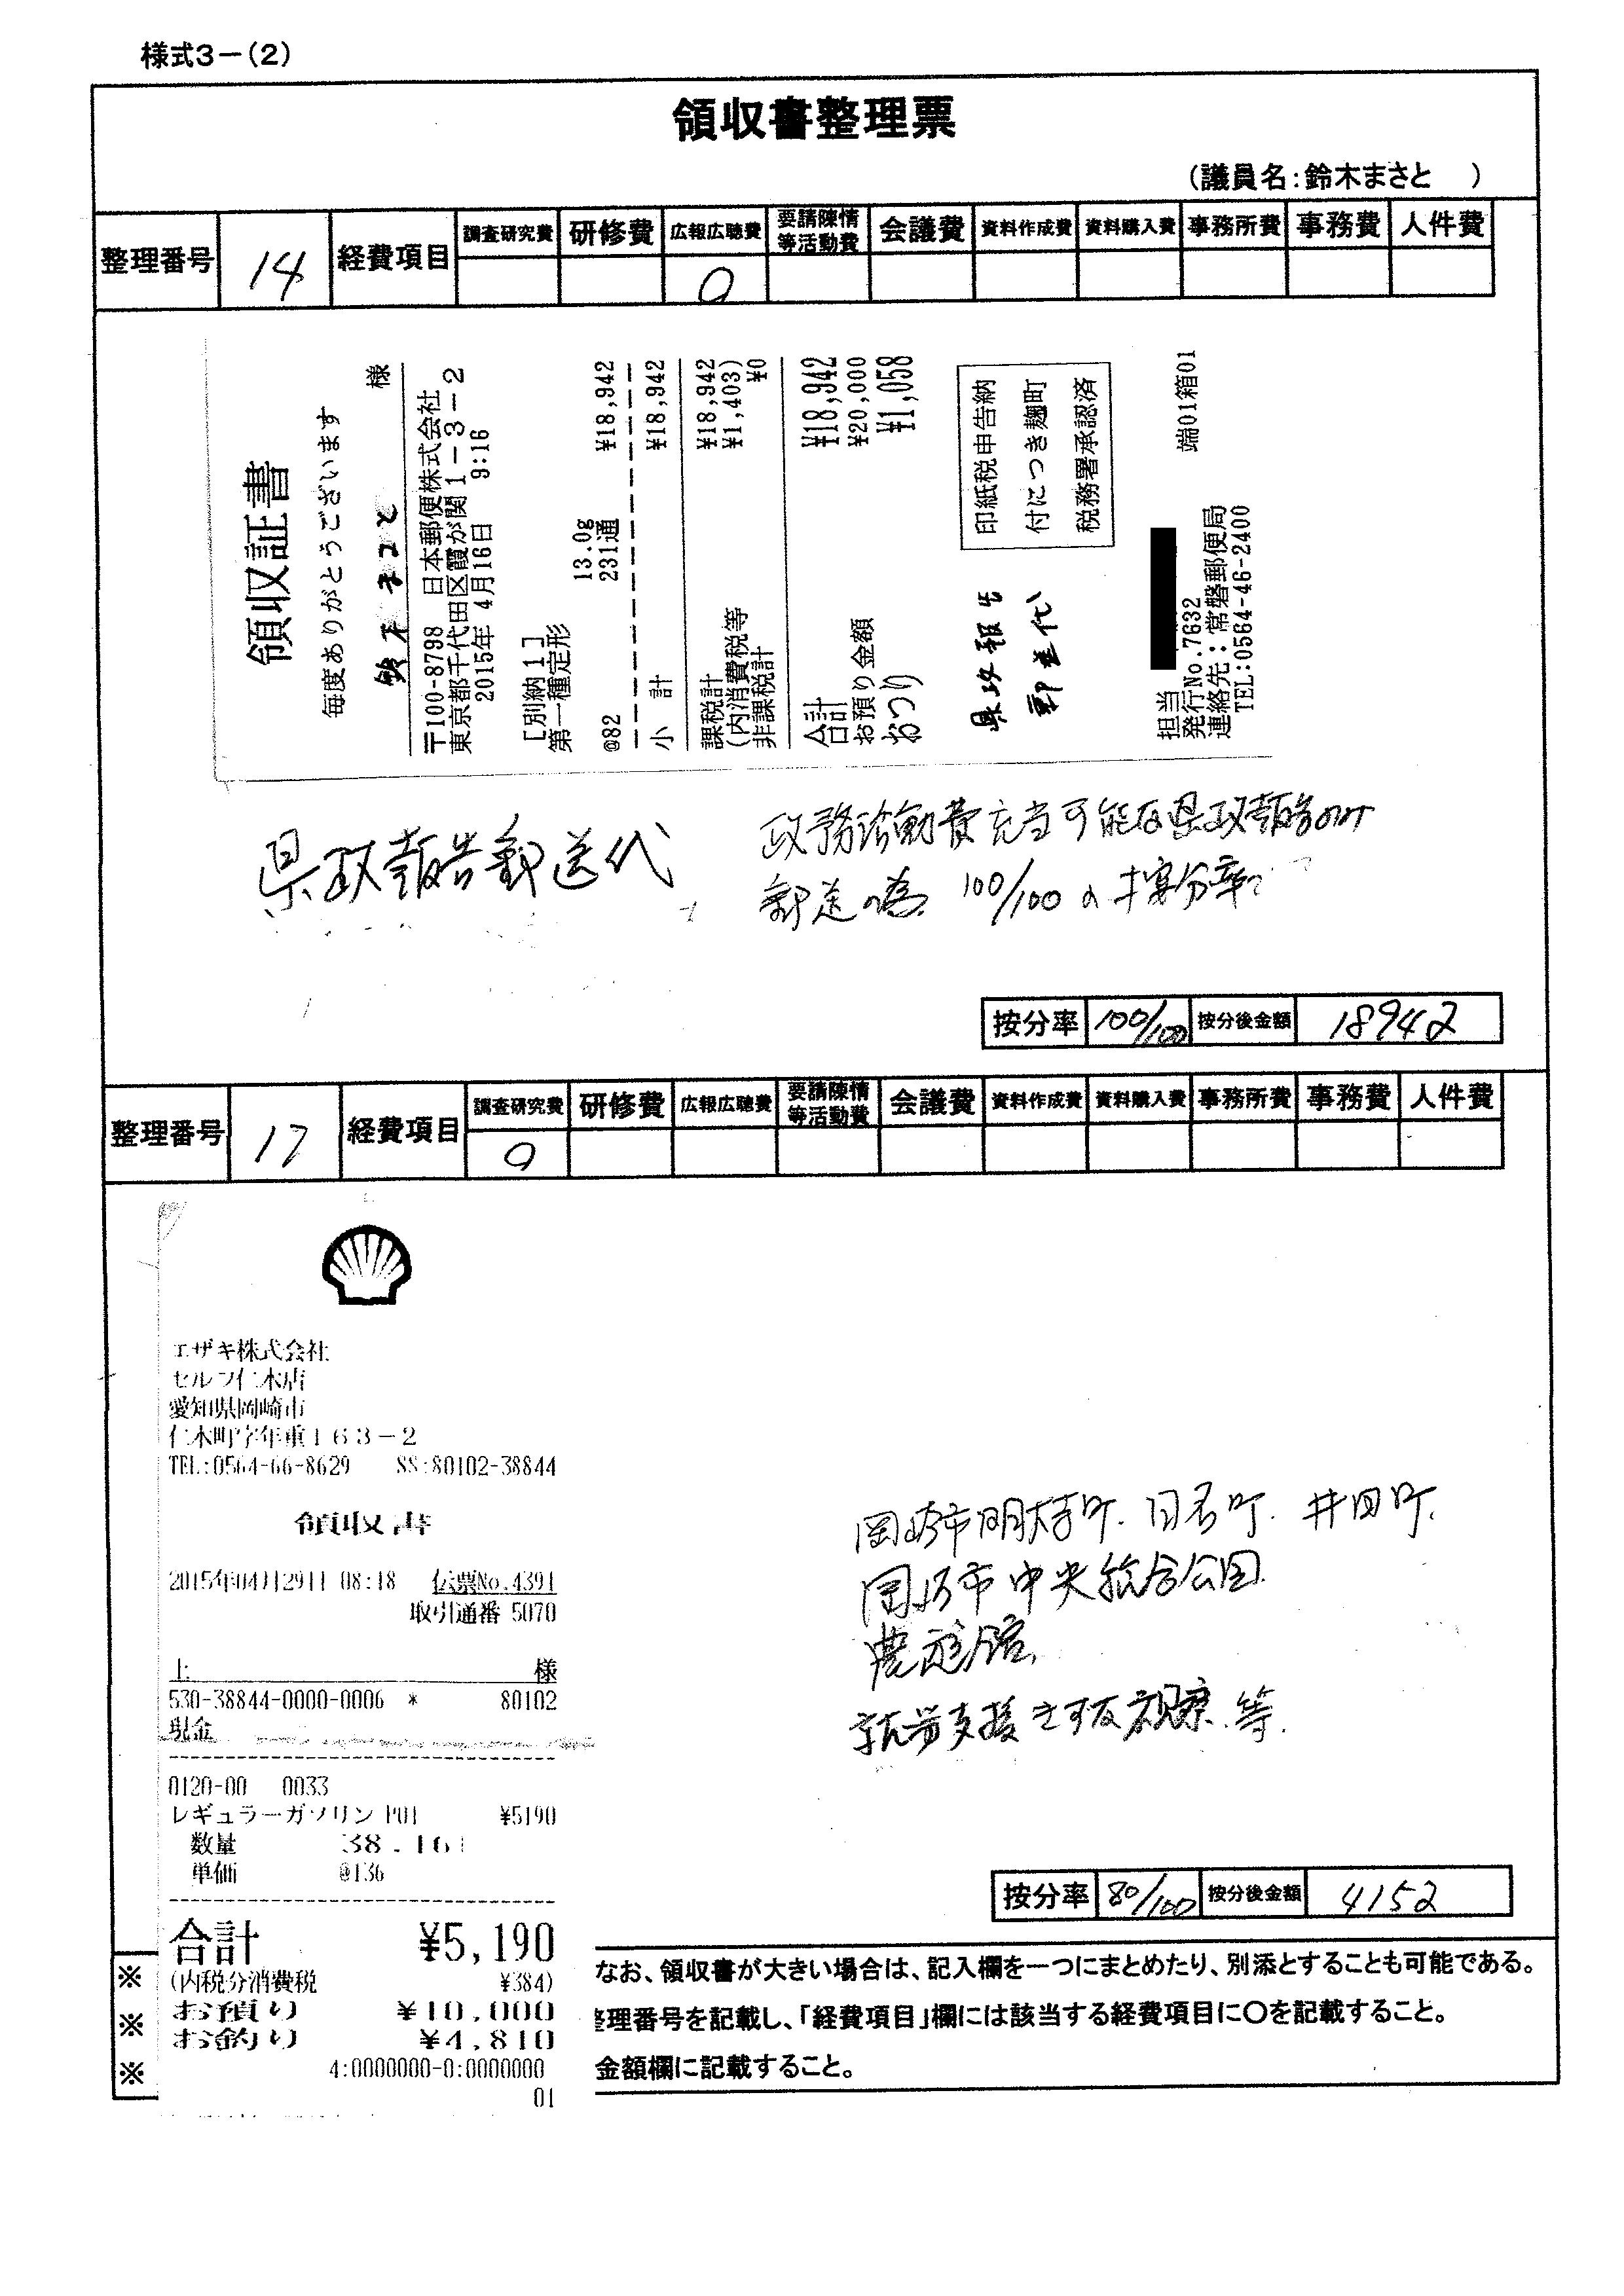 様式3－(2)
領収書整理票
(議員名:鈴木まさと　)
整理番号 14 経費項目 調査研究費 研修費 広報広聴費 要請陳情等活動費 会議費 資料作成費 資料購入費 事務所費 事務費 人件費
○
領収証書
毎度ありがとうございます
鈴木まさと 様
〒100-8798 日本郵便株式会社
東京都千代田区霞が関1-3-2
2015年 4月16日 9:16
[別納1]
第一種定形 13.0g
@82 231通 ¥18,942
小計 ¥18,942
課税計 ¥18,942
(内消費税等 ¥1,403)
非課税計 ¥0
合計 ¥18,942
お預り金額 ¥20,000
おつり ¥1,058
印紙税申告納
付につき麹町
税務署承認済
県政報告
郵送代
担当
発行No.7632 端01箱01
連絡先：常磐郵便局
TEL:0564-46-2400
県政報告郵送代
政務活動費充当可能な県政報告のみ
郵送の為、100/100の按分率で
按分率 100/100 按分後金額 18942
整理番号 17 経費項目 調査研究費 研修費 広報広聴費 要請陳情等活動費 会議費 資料作成費 資料購入費 事務所費 事務費 人件費
○
エザキ株式会社
セルフ仁木店
愛知県岡崎市
仁木町字年重163-2
TEL:0564-66-8629 SS:80102-38844
領収書
2015年04月29日 08:18 伝票No.4391
取引通番 5070
上 様
530-38844-0000-0006 * 80102
現金
0120-00 0033
レギュラーガソリン P01 ¥5190
数量 38.16l
単価 @136
合計 ¥5,190
(内税分消費税 ¥384)
お預り ¥10,000
お釣り ¥4,810
4:0000000-0:0000000
01
岡崎市明大寺町、日名町、井田町、
岡崎市中央総合公園
農遊館、
就労支援きずな視察、等、
按分率 80/100 按分後金額 4152
※ なお、領収書が大きい場合は、記入欄を一つにまとめたり、別添とすることも可能である。
※ 整理番号を記載し、「経費項目」欄には該当する経費項目に○を記載すること。
※ 金額欄に記載すること。